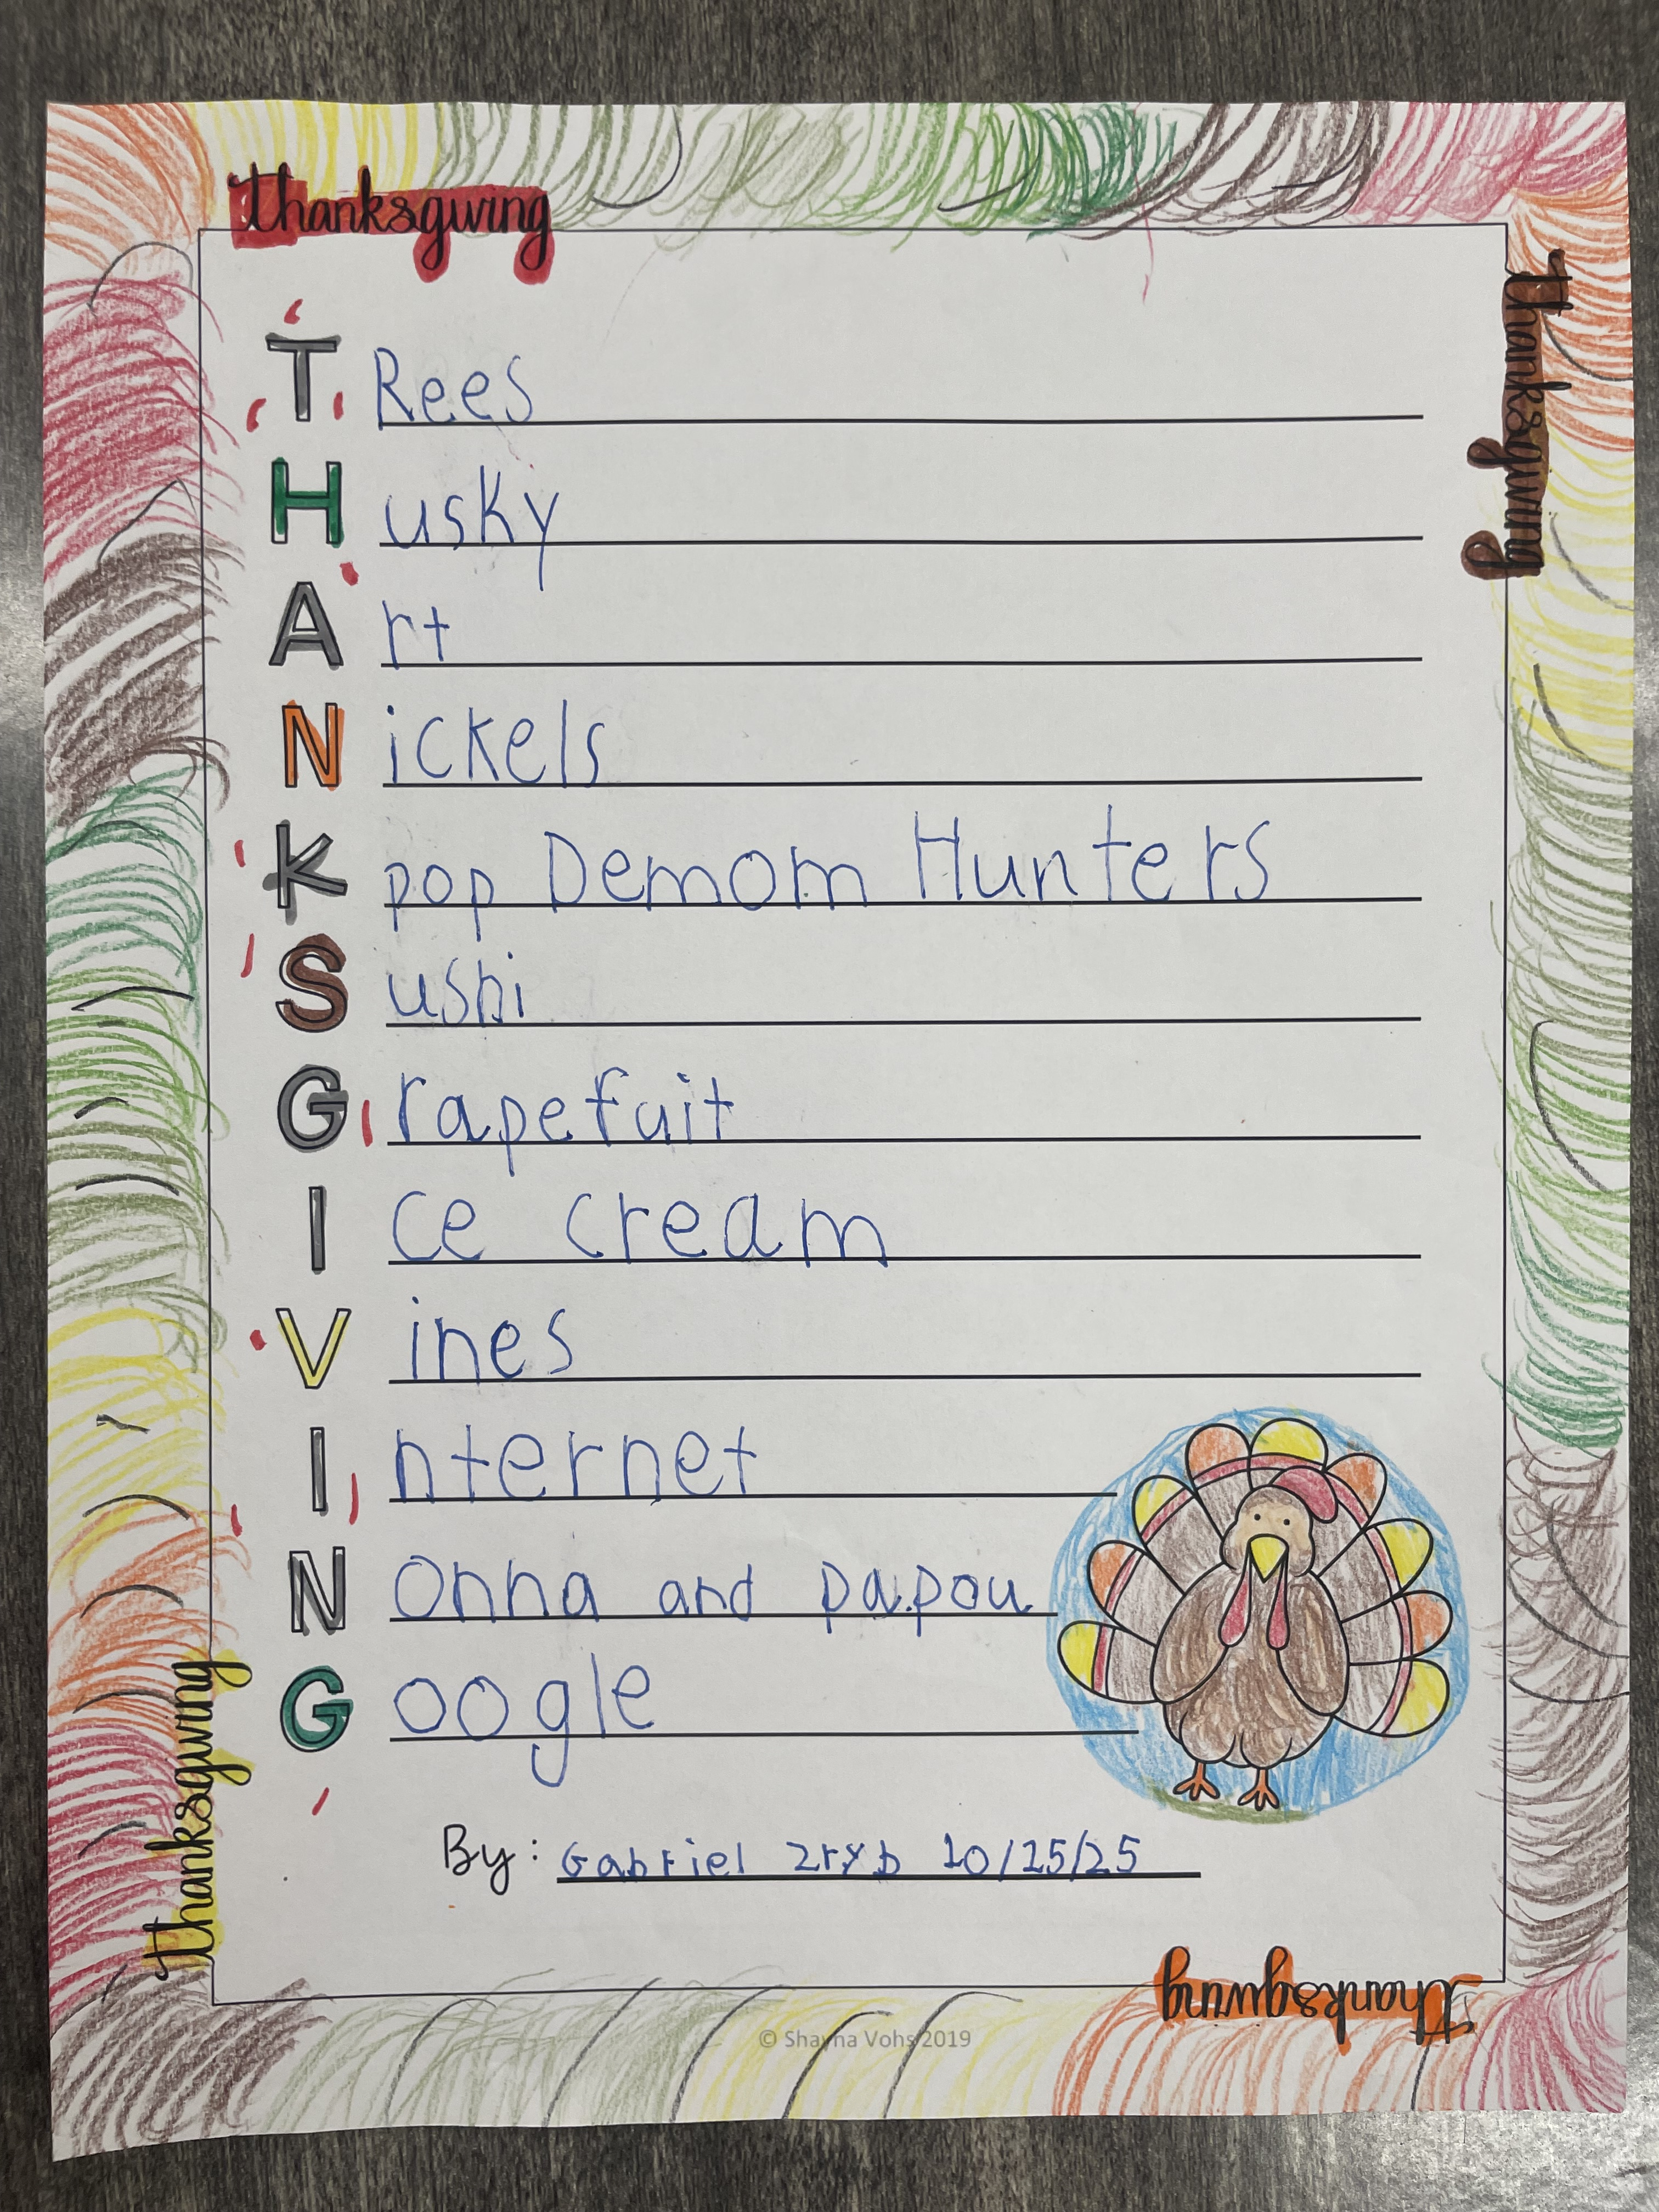 thanksgiving
thanksgiving
T Rees
H usky
A rt
N ickels
K pop Demom Hunters
S ushi
G rapefuit
I ce cream
V ines
I nternet
N onna and papou
G oogle
thanksgiving
By: Gabriel Zryb 10/25/25
thanksgiving
© Shayna Vohs 2019